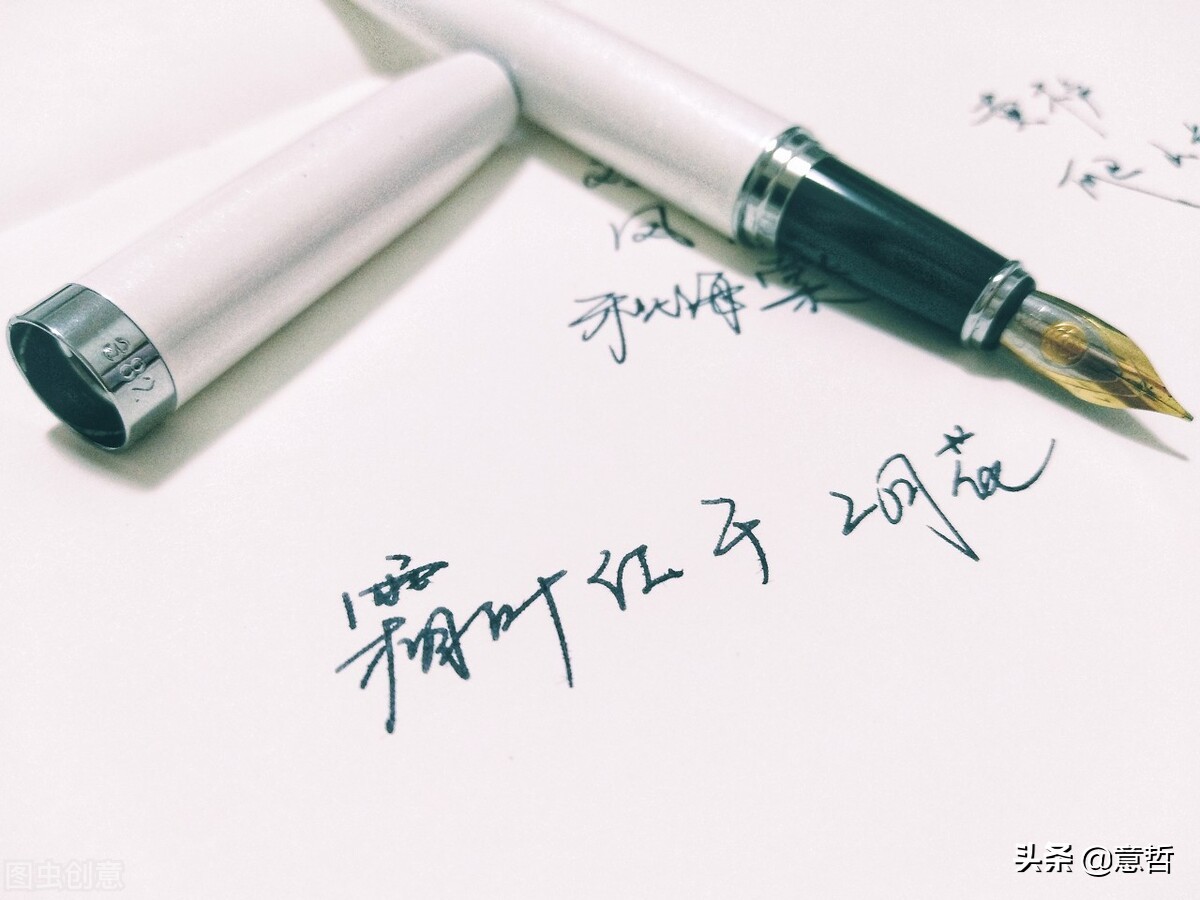 风
秋海棠
霜叶红于二月花
头条 @意哲
图虫创意